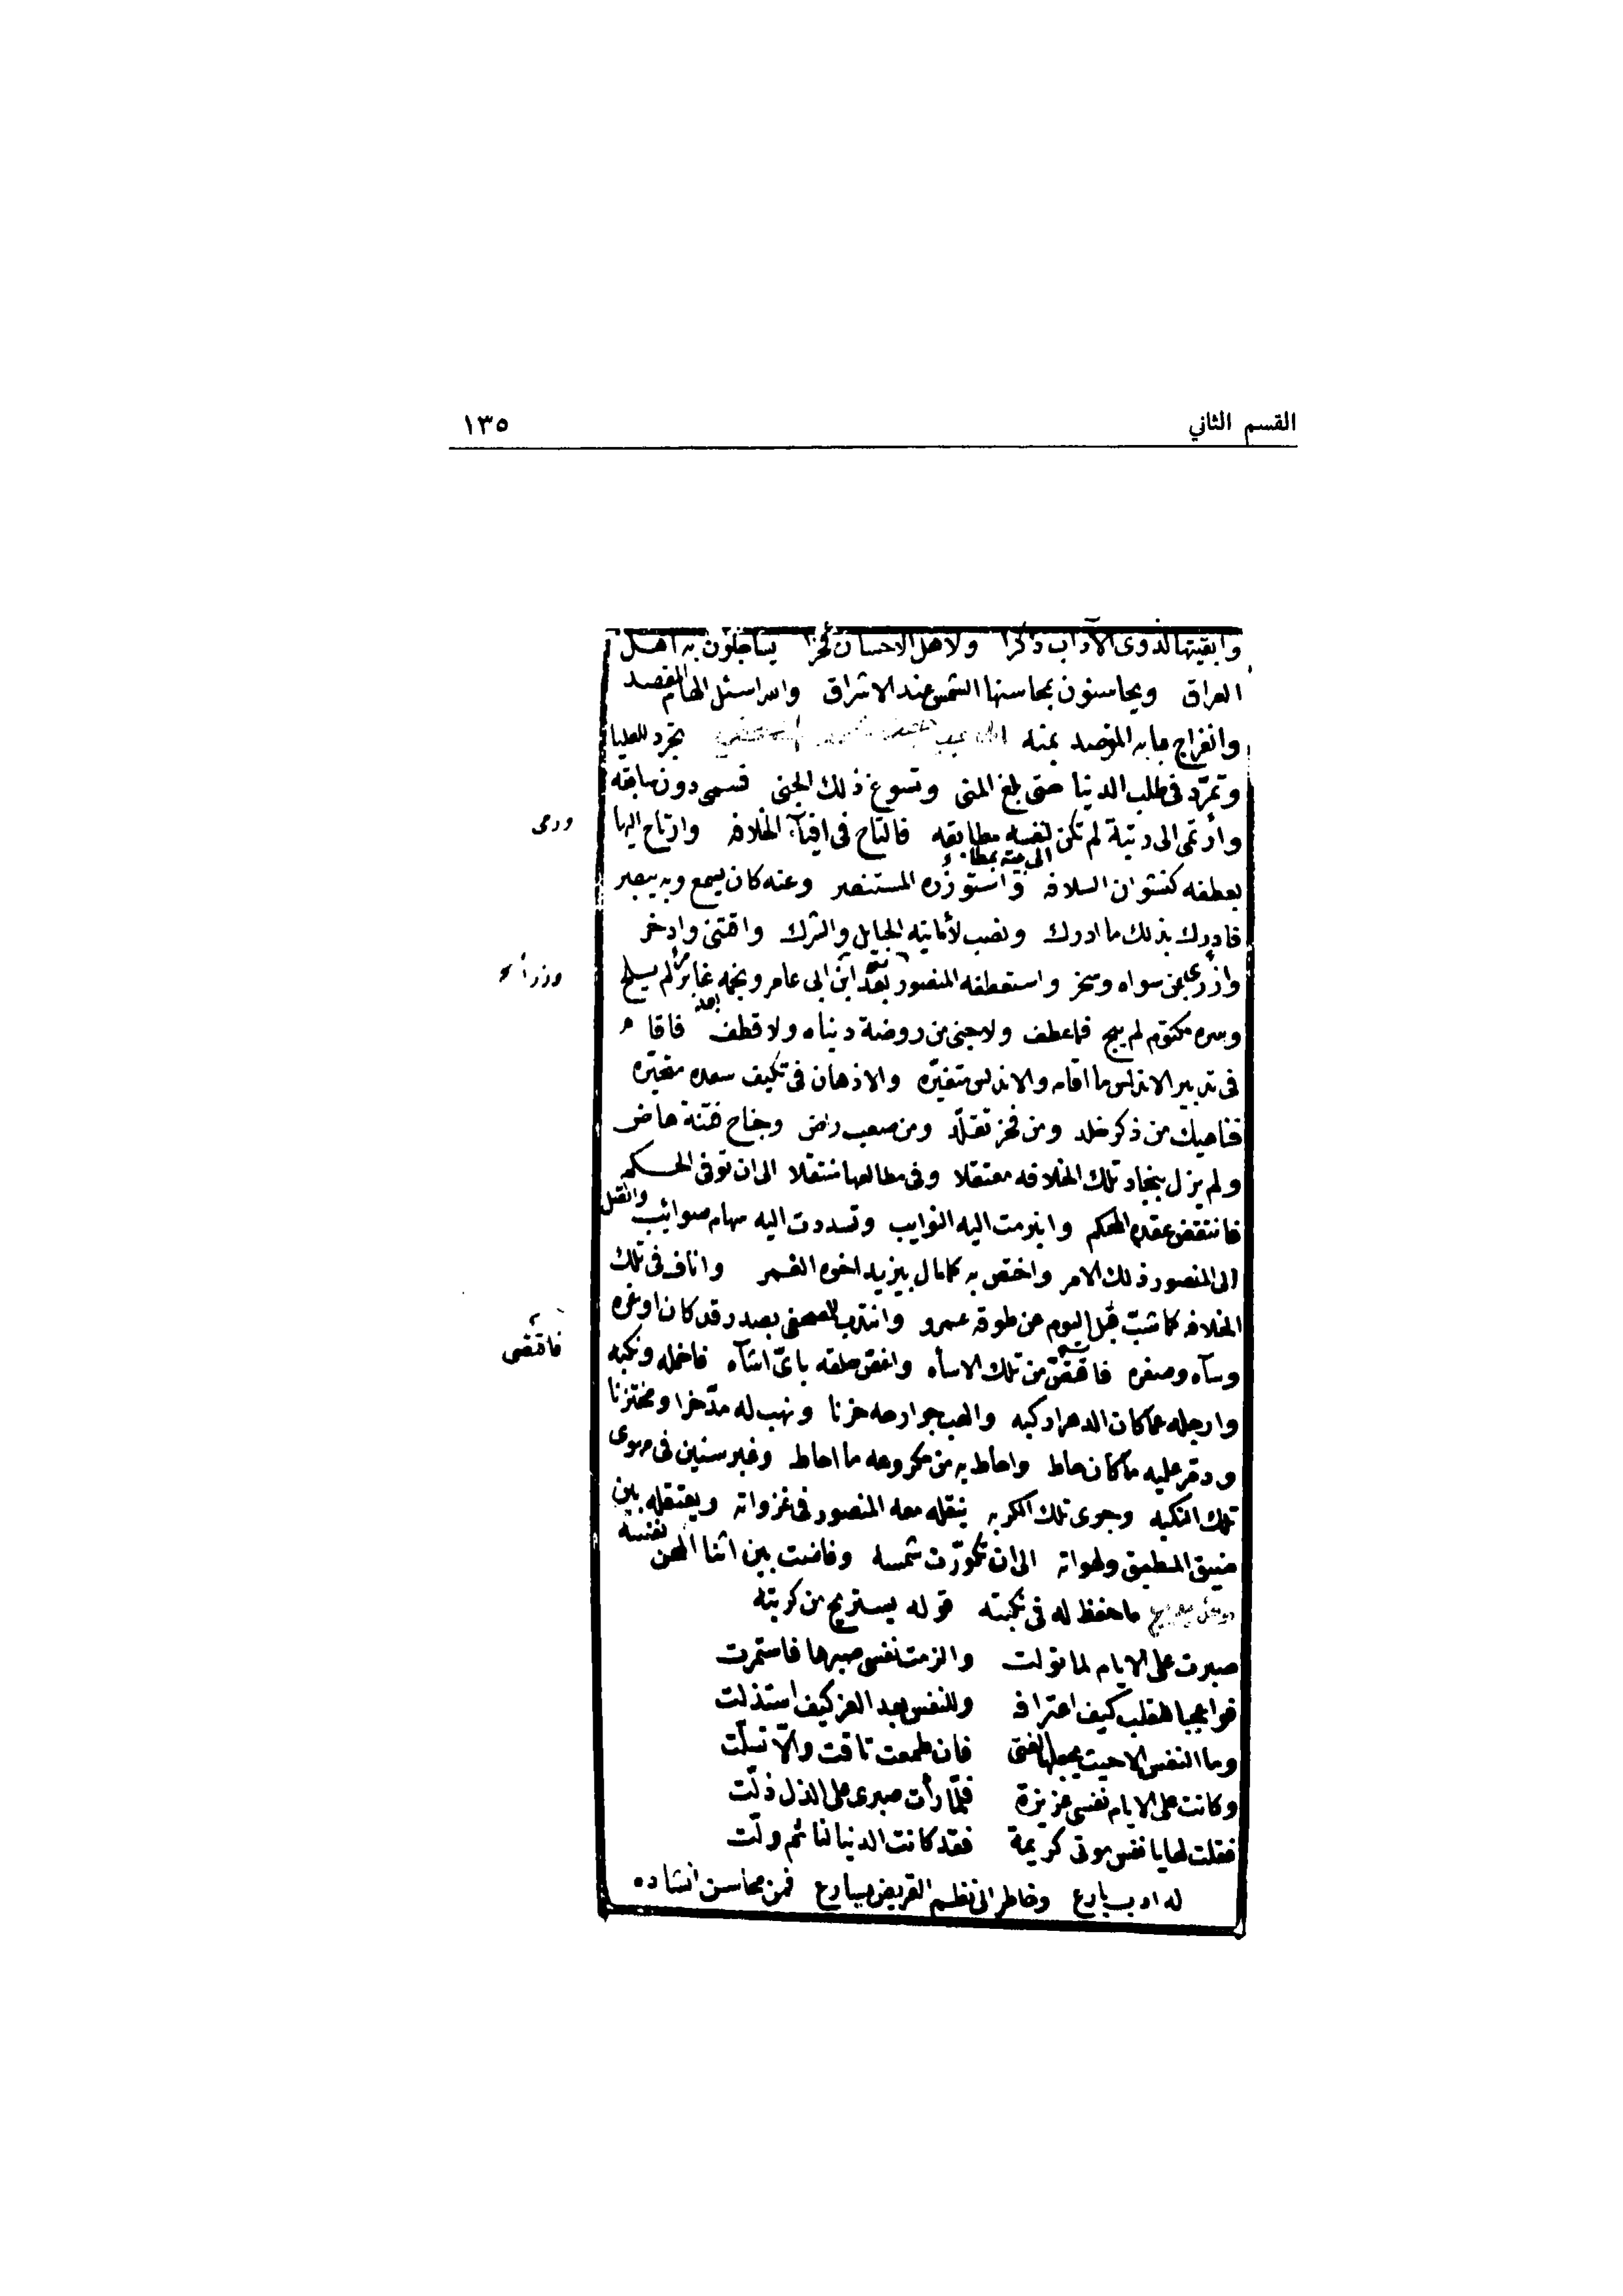 القسم الثاني
١٣٥
وابقيتها لذوى الآداب ذكرا ولاهل الاحسان فخرا يساجلون به اهل
العراق ويحاسنون بمحاسنها الشمس عند الاشراق والله اسئل الهام المقصد
وانفراج بابه الموصد بمنه تجرد للعليا
وتمرّد فى طلب الدنيا حتى بلغ المنى وتسوغ ذلك الجنى فسمى دون سابقه
وارتمى الى رتبة لم تكن لنفسه مطابقه فالتاح فى افيآء الخلافه وارتاح اليها
ورمى
بعطفه كنشوان السلافه واستوزره المستنصر وعنه كان يسمع وبه يبصر
فادرك بذلك ما ادرك ونصب لأمانيه الحبايل والشرك واقتنى وادخر
وازرى بمن سواه وسخر واستعطفه المنصور بعد ابن ابى عامر ونجمه غابر لم يلح
وزرأ
وسره مكتوم لم يبح فما عطف ولا جنى من روضة دنياه ولا قطف فاقام
فى تدبير الاندلس ما اقام والاندلس متغيّره والاذهان فى تكيف سعده متحيّره
فناهيك من ذكر خلد ومن فخر تقلّد ومن صعب راض وجناح فتنة هاض
ولم يزل بنجاد تلك الخلافه معتقلا وفى مطالعها منتقلا الى ان توفى الحكم
فانتقض عقده المحكم وانبرمت اليه النوايب وتسددت اليه سهام صوائب وانتقل
الى المنصور ذلك الامر واختص به كما مال بيزيد اخوه الغمر واناف فى تلك
الخلافه كما شبّ قبل اليوم عن طوقه عمرو وانتدب للمصحفى بصدر قد كان اوغره
وسآه وصغره فاقتصّ من تلك الاسأه واغصّ حلقه باىّ اشآه فاخمله ونكبه
فاقتضى
وارجله عما كان الدهر اركبه والهب جوارحه حزنا ونهب له مدّخرا ومختزنا
ودمّر عليه ما كان حاط واحاط به من مكروهه ما احاط وغبر سنين فى مهوى
تلك النكبه وجوى تلك الكربه ينقله معه المنصور فى غزواته ويعتقله بين
ضيق المطبق ولهواته الى ان تكوّرت شمسه وفاضت بين اثنا المحن نفسه
ما حفظ له فى نكبته قوله يستريح من كربته
صبرت على الايام لما تولت والزمت نفسى صبرها فاستمرت
فواعجبا للقلب كيف اعترافه وللنفس بعد العز كيف استذلت
وما النفس الا حيث يجعلها الفتى فان طمعت تاقت والّا تسلّت
وكانت على الايام نفسى عزيزة فلمّا رأت صبرى على الذل ذلّت
فقلت لها يا نفس موتى كريمة فقد كانت الدنيا لنا ثم ولّت
له ادب بارع وخاطر الى نظم القريض يسارع فمن محاسن انشاده